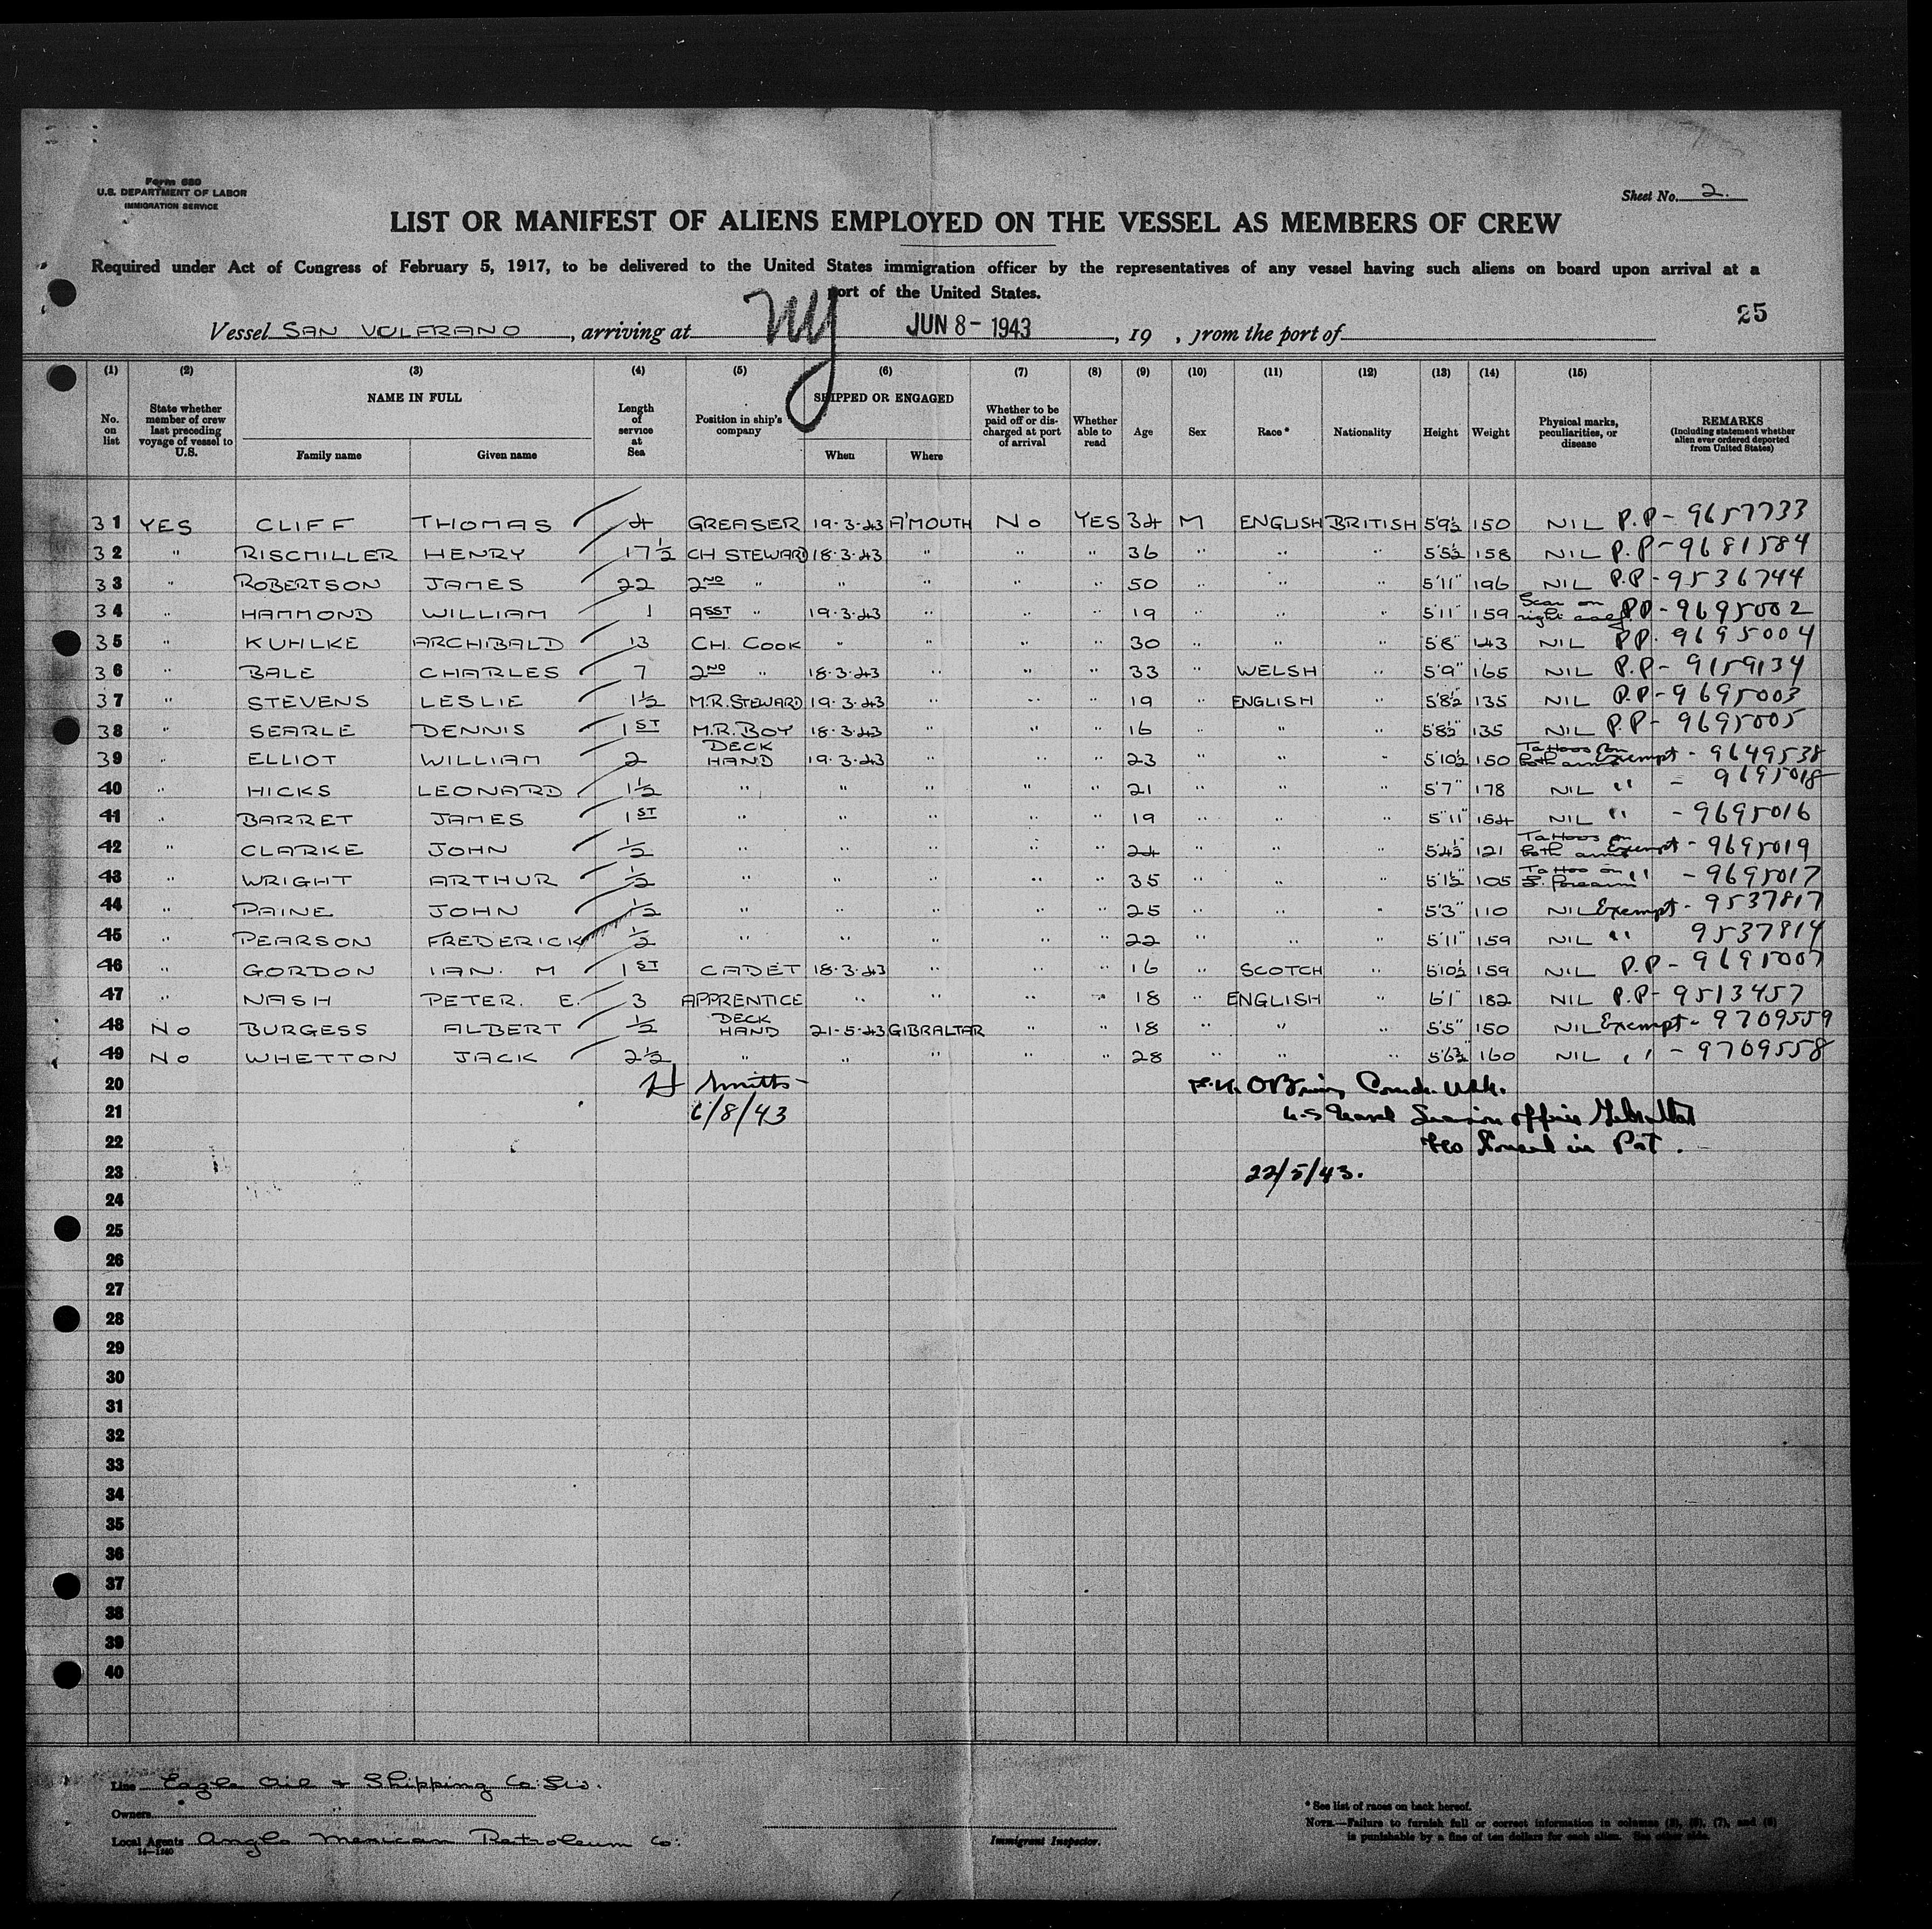 Form 680
U.S. DEPARTMENT OF LABOR
IMMIGRATION SERVICE
Sheet No. 2.
LIST OR MANIFEST OF ALIENS EMPLOYED ON THE VESSEL AS MEMBERS OF CREW
Required under Act of Congress of February 5, 1917, to be delivered to the United States immigration officer by the representatives of any vessel having such aliens on board upon arrival at a
port of the United States.
25
Vessel SAN VOLFRANO, arriving at NY JUN 8 - 1943, 19 , from the port of
(1) (2) (3) (4) (5) (6) (7) (8) (9) (10) (11) (12) (13) (14) (15)
No. on list State whether member of crew last preceding voyage of vessel to U.S. NAME IN FULL Family name Given name Length of service at Sea Position in ship's company SHIPPED OR ENGAGED When Where Whether to be paid off or discharged at port of arrival Whether able to read Age Sex Race* Nationality Height Weight Physical marks, peculiarities, or disease REMARKS (Including statement whether alien ever ordered deported from United States)
31 YES CLIFF THOMAS 4 GREASER 19-3-43 A'MOUTH No YES 34 M ENGLISH BRITISH 5'9½ 150 NIL P.P - 9657733
32 " RISCMILLER HENRY 17½ CH STEWARD 18-3-43 " " " 36 " " " 5'5½ 158 NIL P.P - 9681584
33 " ROBERTSON JAMES 22 2ND " " " " " 50 " " " 5'11" 196 NIL P.P - 9536744
34 " HAMMOND WILLIAM 1 ASST " 19-3-43 " " " 19 " " " 5'11" 159 Scar on right calf PP - 9695002
35 " KUHLKE ARCHIBALD 13 CH. COOK " " " " 30 " " " 5'8" 143 NIL PP. 9695004
36 " BALE CHARLES 7 2ND " 18-3-43 " " " 33 " WELSH " 5'9" 165 NIL P.P - 9159134
37 " STEVENS LESLIE 1½ M.R. STEWARD 19-3-43 " " " 19 " ENGLISH " 5'8½ 135 NIL P.P - 9695003
38 " SEARLE DENNIS 1ST M.R. BOY 18-3-43 " " " 16 " " " 5'8½ 135 NIL P.P - 9695005
39 " ELLIOT WILLIAM 2 DECK HAND 19-3-43 " " " 23 " " " 5'10½ 150 Tattoos on both arms Exempt - 9649538
40 " HICKS LEONARD 1½ " " " " " 21 " " " 5'7" 178 NIL " - 9695018
41 " BARRET JAMES 1ST " " " " " 19 " " " 5'11" 154 NIL " - 9695016
42 " CLARKE JOHN ½ " " " " " 24 " " " 5'4½ 121 Tattoos on both arms Exempt - 9695019
43 " WRIGHT ARTHUR ½ " " " " " 35 " " " 5'1½ 105 Tattoo on L. forearm " - 9695017
44 " PAINE JOHN ½ " " " " " 25 " " " 5'3" 110 NIL Exempt - 9537817
45 " PEARSON FREDERICK ½ " " " " " 22 " " " 5'11" 159 NIL " 9537814
46 " GORDON IAN. M 1ST CADET 18-3-43 " " " 16 " SCOTCH " 5'10½ 159 NIL P.P - 9695007
47 " NASH PETER. E. 3 APPRENTICE " " " " 18 " ENGLISH " 6'1" 182 NIL P.P - 9513457
48 No BURGESS ALBERT ½ DECK HAND 21-5-43 GIBRALTAR " " 18 " " " 5'5" 150 NIL Exempt - 9709559
49 No WHETTON JACK 2½ " " " " " 28 " " " 5'6¾ 160 NIL " - 9709558
20 H Smitts F.K. O'Brien, Comdr.
21 6/8/43 U.S. Naval Liaison Officer Gibraltar
22 in Port.
23 22/5/43.
24
25
26
27
28
29
30
31
32
33
34
35
36
37
38
39
40
Line Eagle Oil & Shipping Co: Ltd.
Owners "
Local Agents Anglo Mexican Petroleum Co:
14-1240
Immigrant Inspector.
* See list of races on back hereof.
NOTE.—Failure to furnish full or correct information in columns (2), (5), (7), and (8)
is punishable by a fine of ten dollars for each alien. See other side.